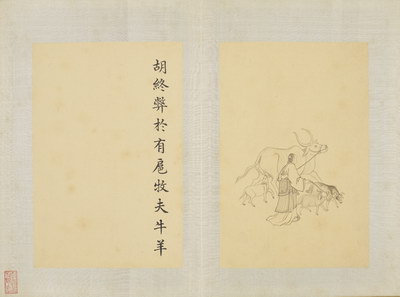 胡終弊於有扈牧夫牛羊